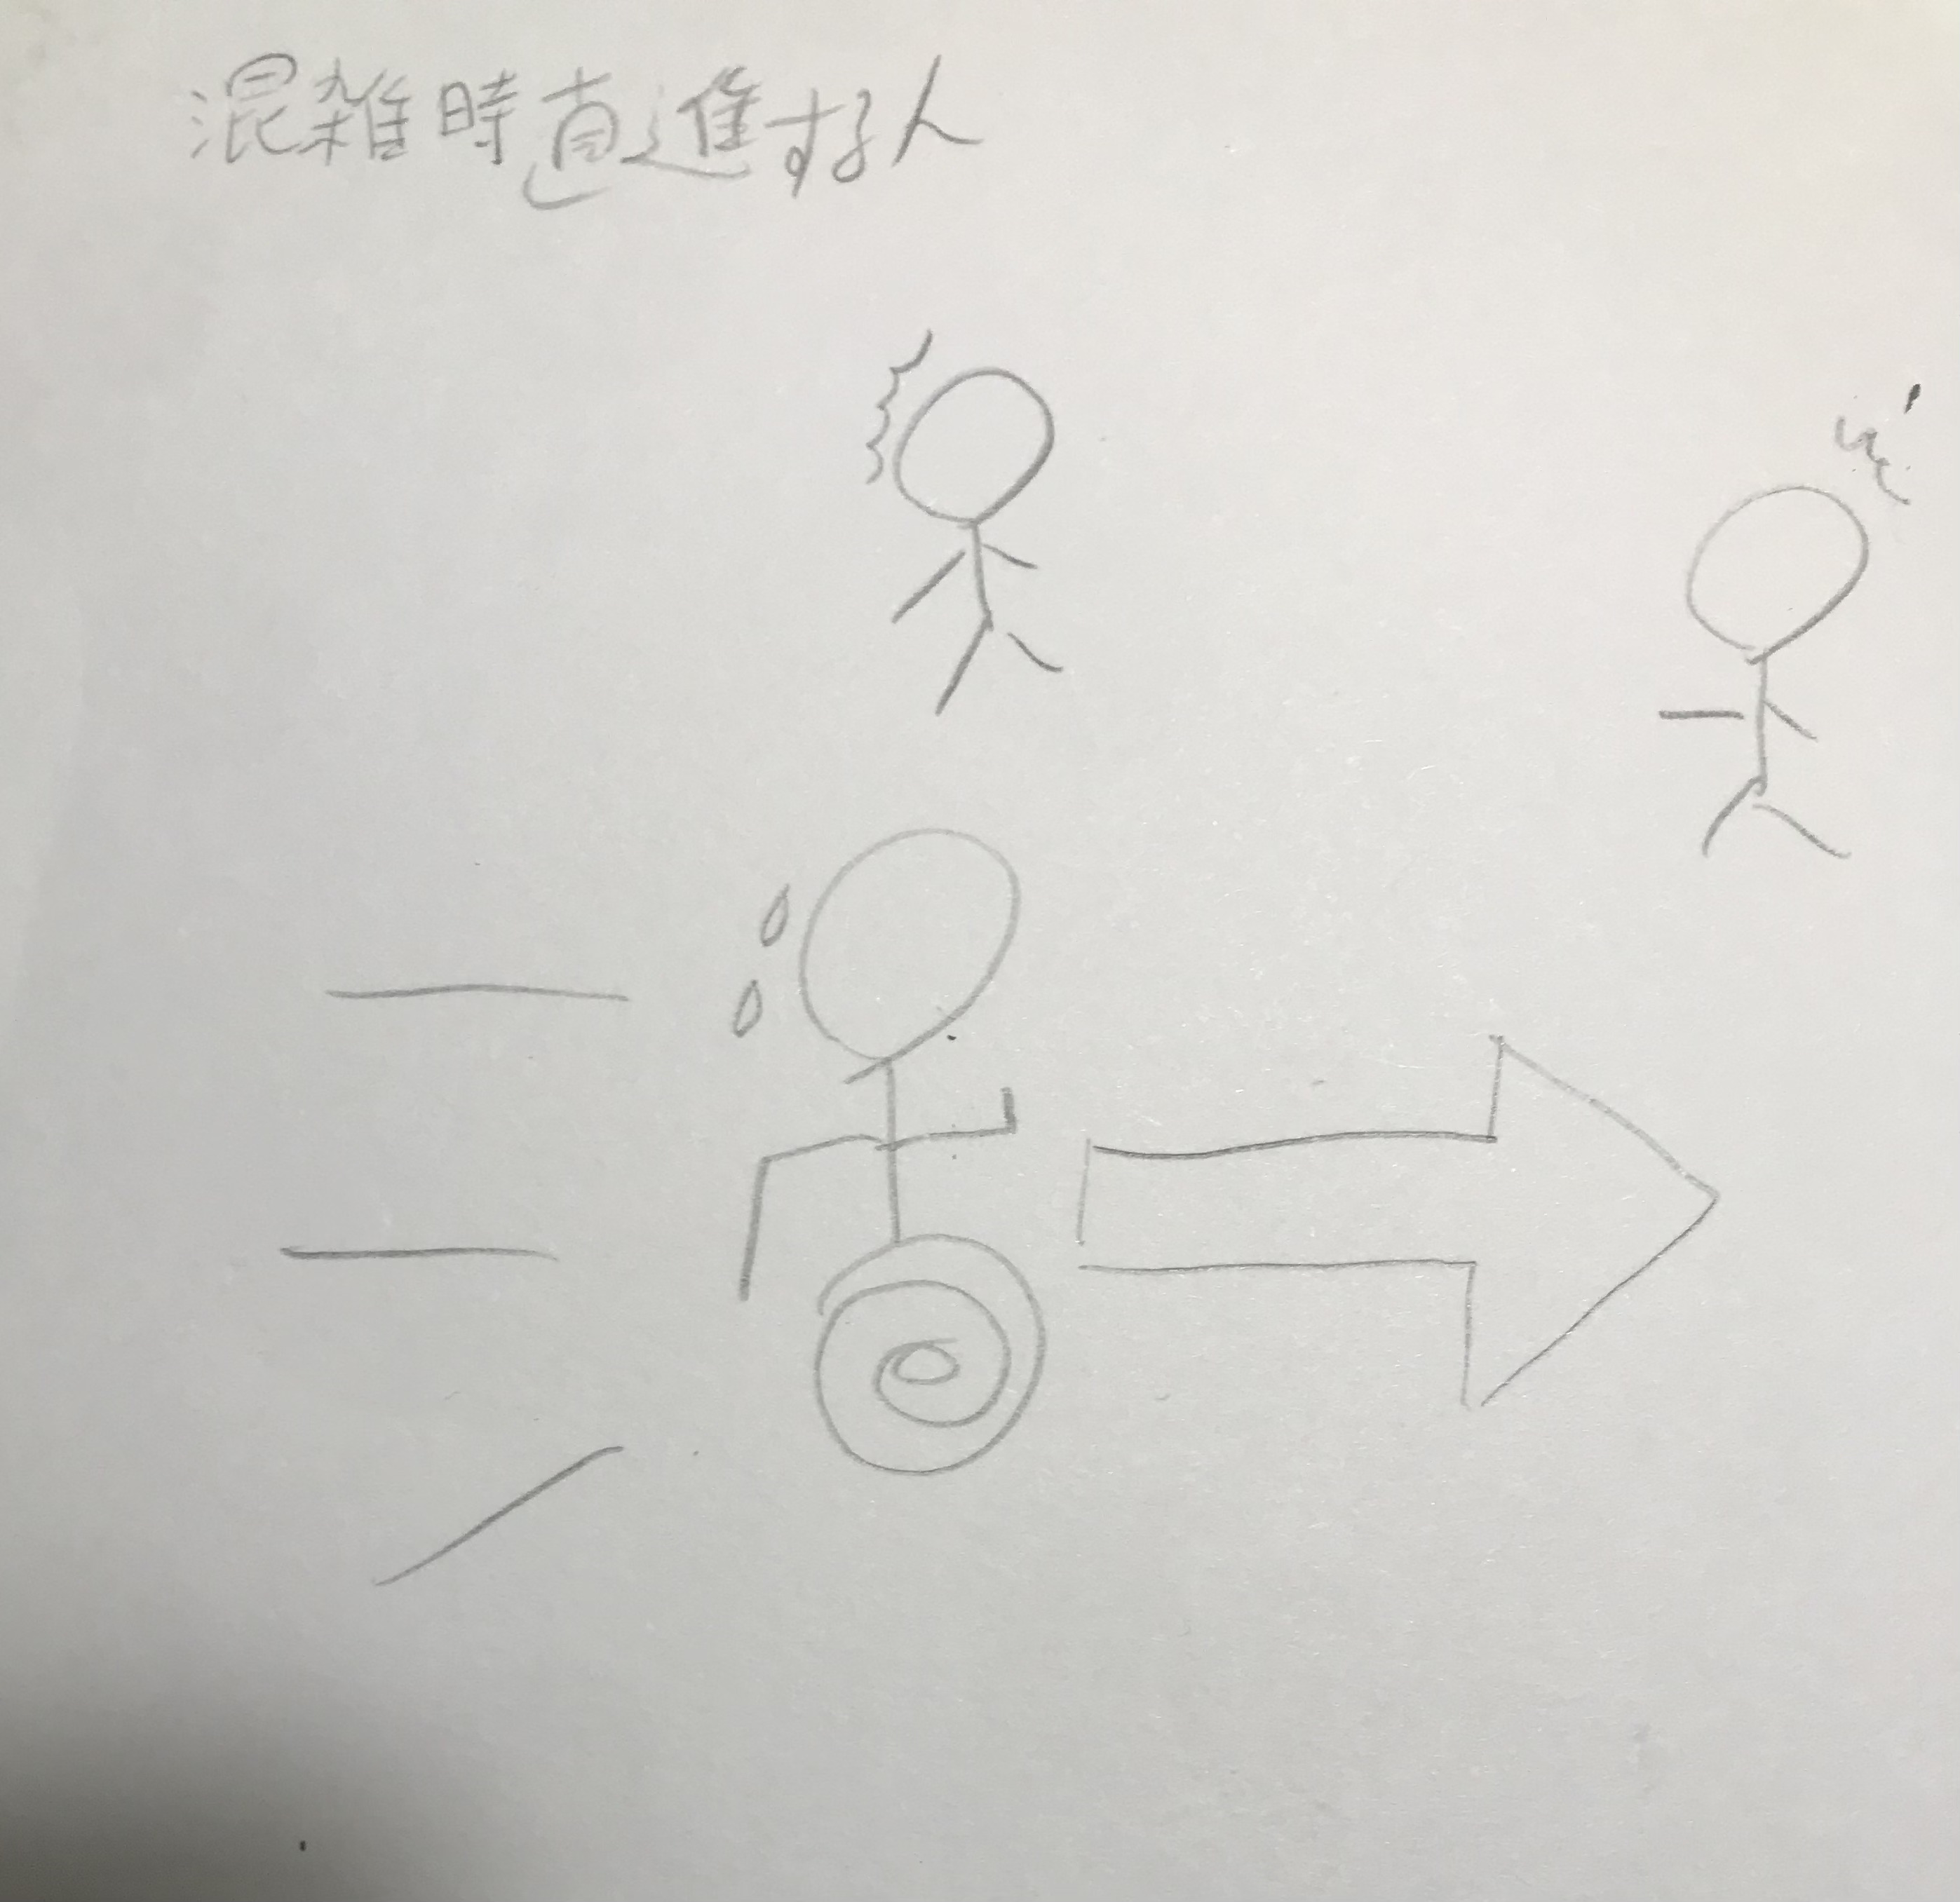 混雑時直進する人